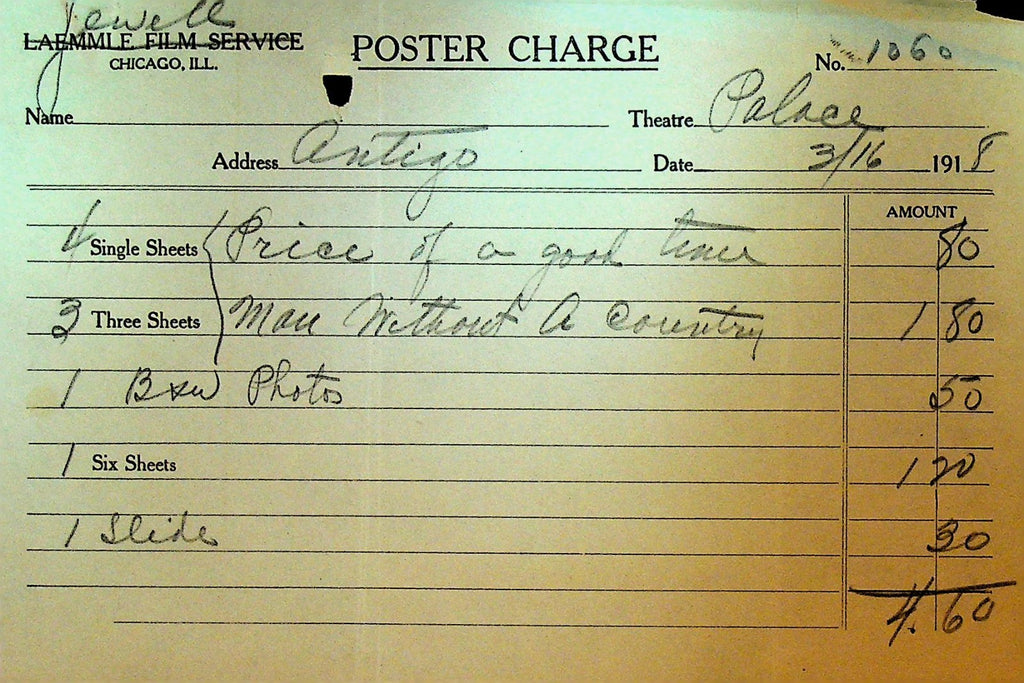 Jewell
LAEMMLE FILM SERVICE
CHICAGO, ILL.
POSTER CHARGE
No. 1060
Name
Theatre Palace
Address Antigo
Date 3/16 1918
AMOUNT
4 Single Sheets Price of a good time 80
3 Three Sheets Man Without A Country 1 80
1 B&W Photos 50
1 Six Sheets 1 20
1 Slide 30
4.60